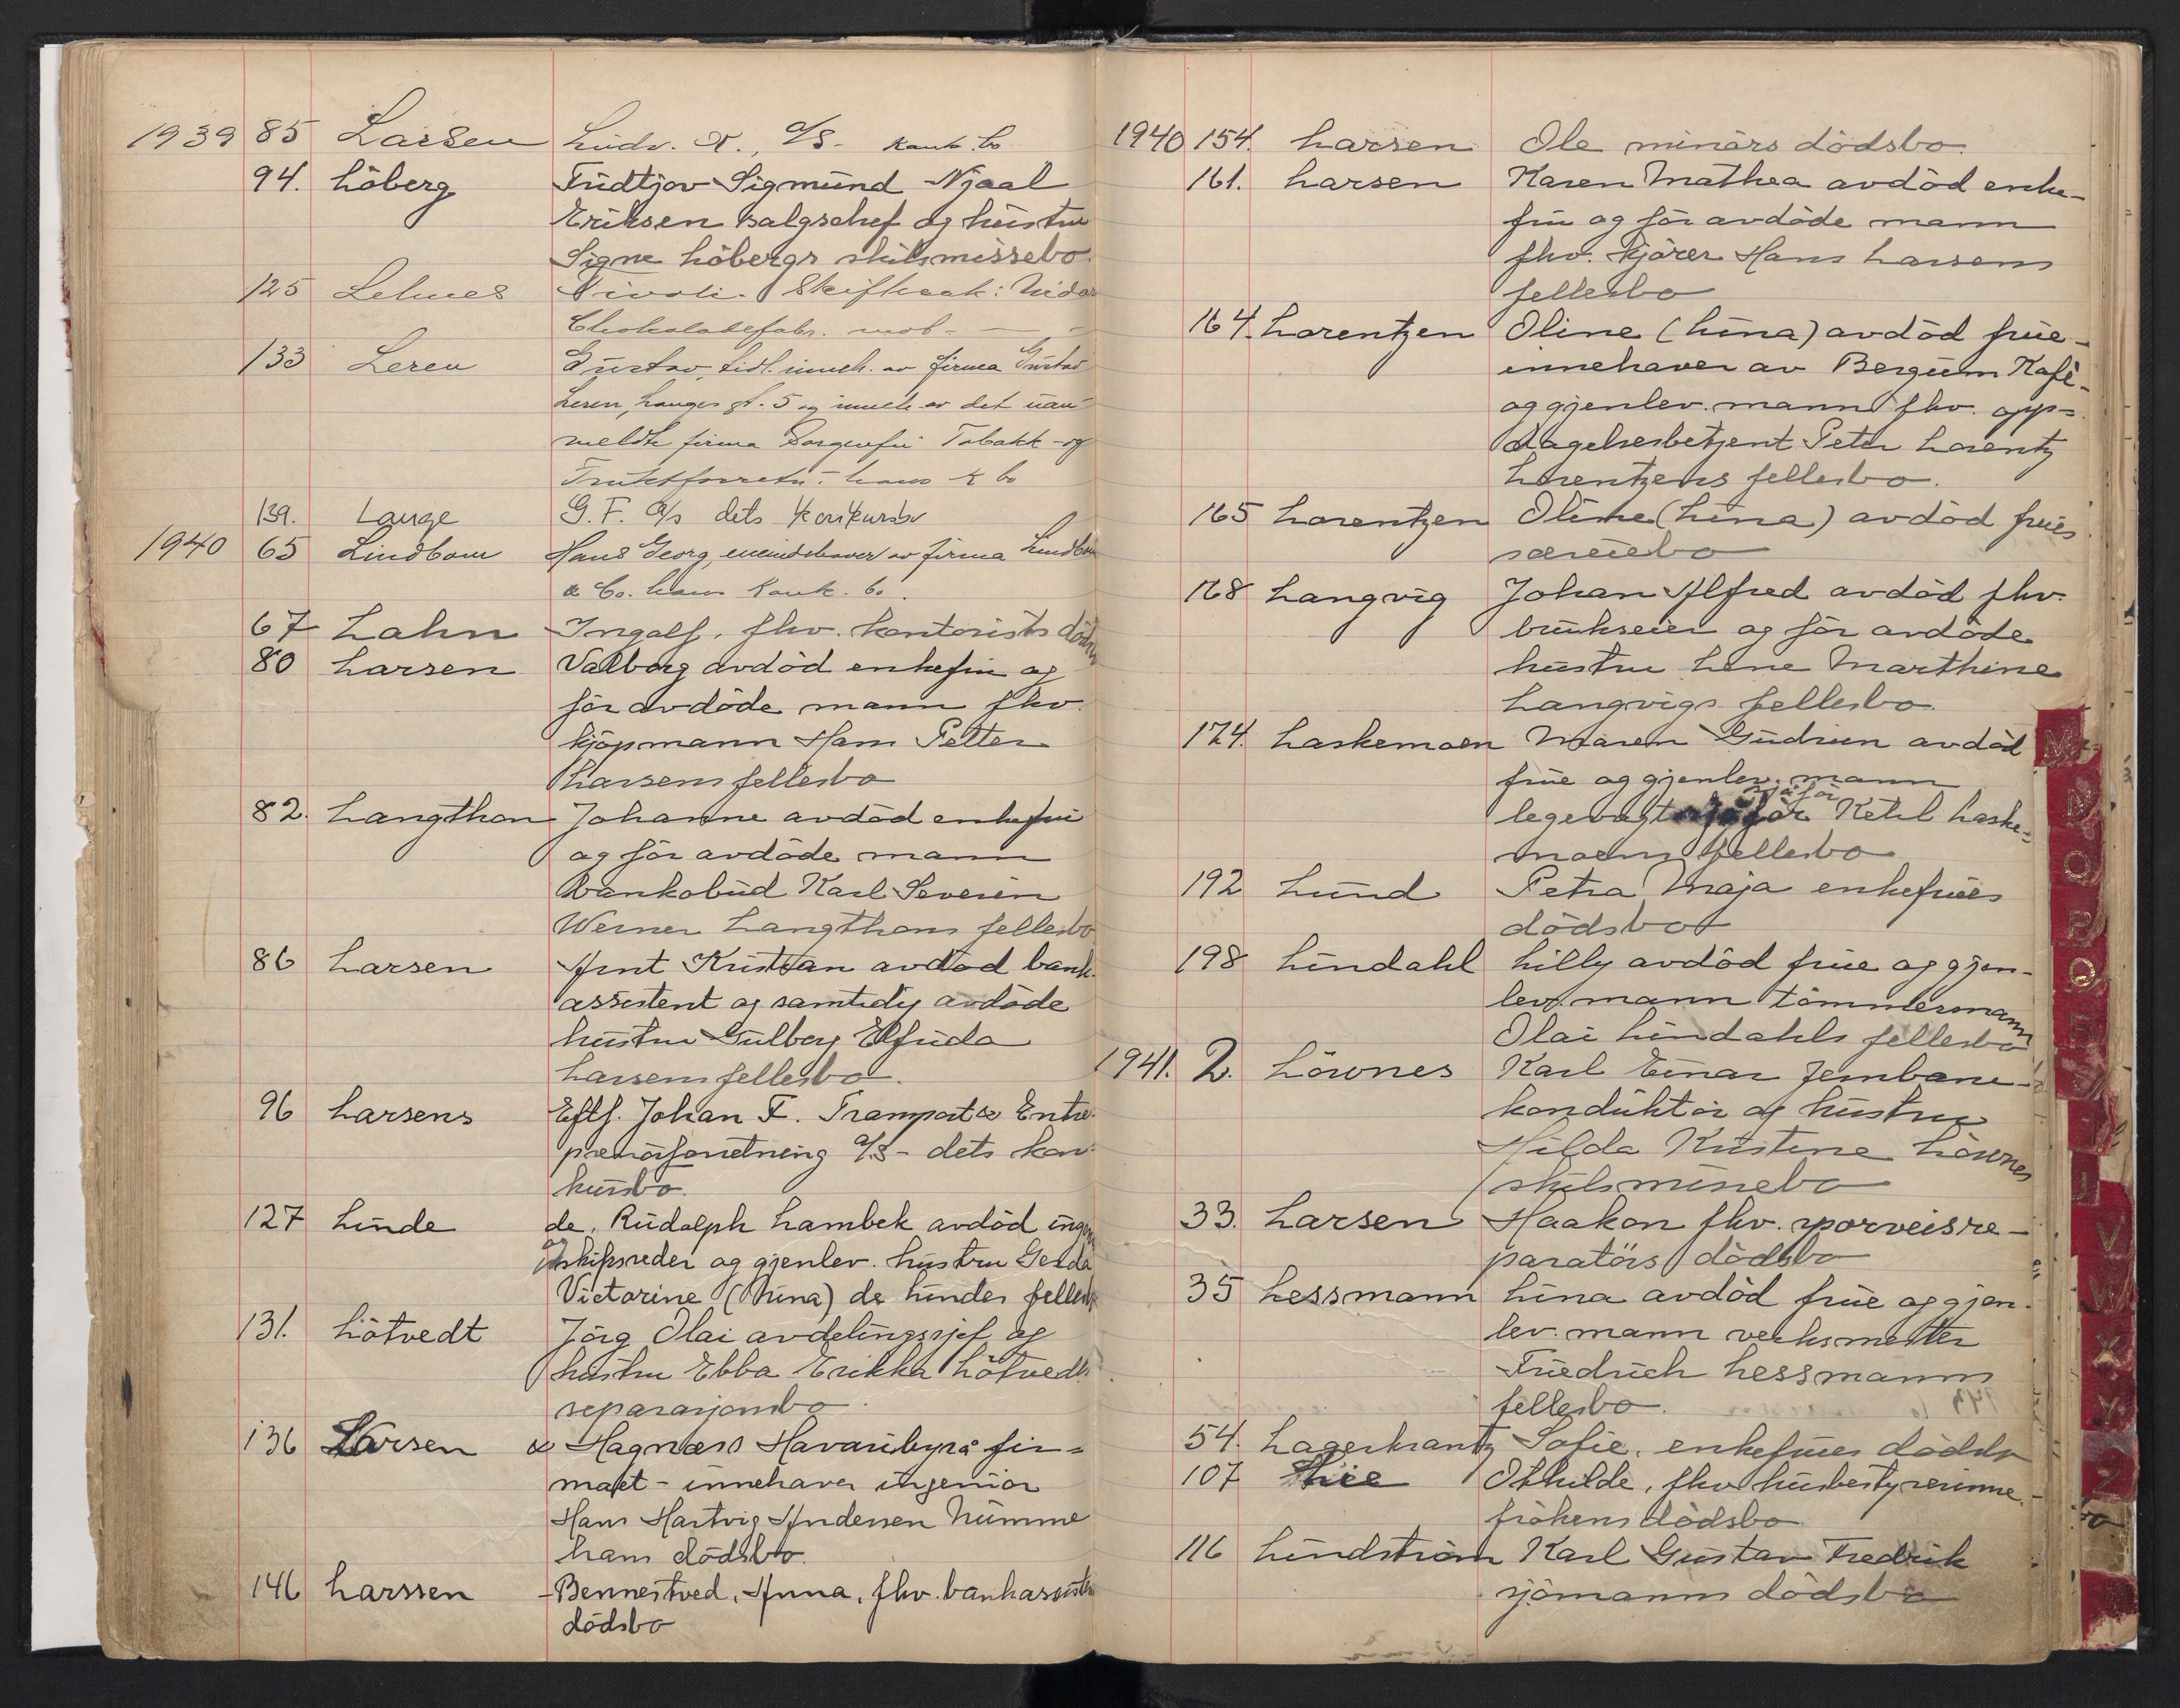 1939 85 Larsen Ludv. A., A/S - konk. bo
94. Löberg Fridtjov Sigmund Njaal
Eriksen salgschef og hustru
Signe Löbergs skilsmissebo.
125 Lehnes Tivoli. Skifteak: Nidar
Chokoladefabr. mot - — -
133 Leren Gustav, tidl. inneh. av firma Gustav
Leren, Langes gt. 5 og inneh. av det uan-
meldte firma Sorgenfri Tobakk - og
Fruktforretn. - hans k bo
139. Lange G. F. A/s dets konkursbo
1940 65 Lindbom Hans Georg, eneindehaver av firma Lindbom
& Co. hans konk. bo.
67 Lahn Ingolf, fhv. kontorists dödsbo
80 Larsen Valborg avdöd enkefru og
för avdöde mann fhv.
kjöpmann Hans Petter
Larsens fellesbo
82. Langthon Johanne avdöd enkefru
og för avdöde mann
bankobud Karl Severin
Werner Langthons fellesbo
86 Larsen Arnt Kristian avdöd bank-
assistent og samtidig avdöde
hustru Gulborg Elfrida
Larsens fellesbo.
96 Larsens Eftf. Johan F. Transport & Entre-
prenörforretning A/S - dets kon-
kursbo.
127 Linde de, Rudolph Lambek avdöd ingen
og skipsreder og gjenlev. hustru Gerda
Victorine (Nina) de Lindes fellesbo
131. Lötvedt Jörg Olai avdelingssjef og
hustru Ebba Erikka Lötvedts
separasjonsbo.
136 Larsen & Hagnæss Havaribyrå fir-
maet - innehaver ingeniör
Hans Hartvig Andersen Numme
hans dödsbo.
146 Larssen - Bennestved, Anna, fhv. bankassistents
dödsbo
1940 154. Larsen Ole minörs dödsbo.
161. Larsen Karen Mathea avdöd enke-
fru og för avdöde mann
fhv. kjörer Hans Larsens
fellesbo
164. Lorentzen Oline (Lina) avdöd frue -
innehaver av Bergum Kafè -
og gjenlev. mann fhv. opp-
dagelsesbetjent Peter Lorentz
Lorentzens fellesbo.
165 Lorentzen Oline (Lina) avdöd frues
særeiebo
168 Langvig Johan Alfred avdöd fhv.
brukseier og för avdöde
hustru Lene Marthine
Langvigs fellesbo.
174. Laskemoen Maren Gudrun avdöd
frue og gjenlev. mann
sjåför
legevagt Ketil Laske-
moens fellesbo
192 Lund Petra Maja enkefrues
dödsbo
198 Lindahl Lilly avdöd frue og gjen-
lev. mann tömmermann
Olai Lindahls fellesbo
1941. 2. Lövnes Karl Einar jernbane-
konduktör og hustru
Hilda Kristine Lövnes
skilsmissebo
33. Larsen Haakon fhv. sporveisre-
paratörs dödsbo
35 Lessmann Lina avdöd frue og gjen-
lev. mann verksmester
Friedrich Lessmanns
fellesbo.
54. Lagerkrantz Sofie, enkefrues dödsbo
107 Lie Othilde, fhv husbestyrerinne, -
frökens dödsbo
116 Lindström Karl Gustav Fredrik
sjömanns dödsbo
M
N
O
P
Q
R
V
W
X
Y
Z